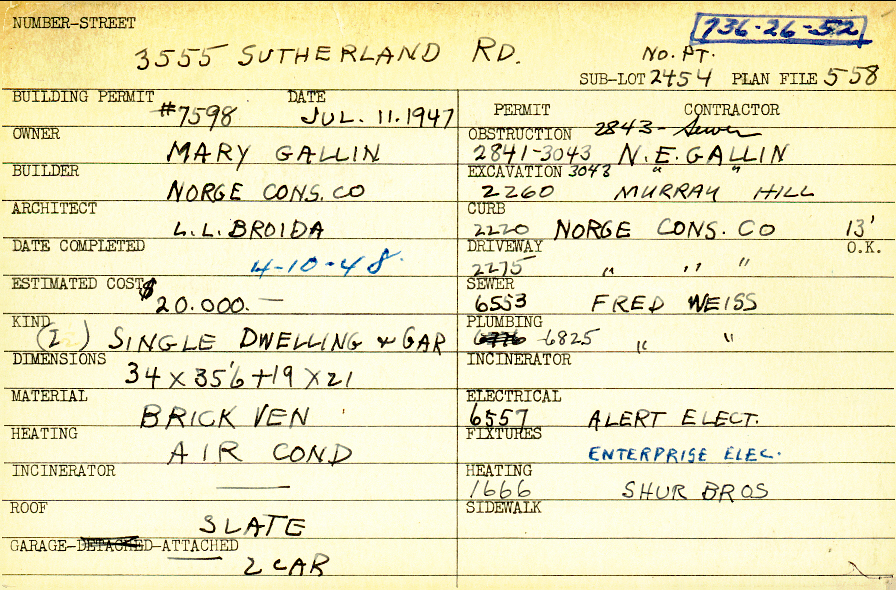 NUMBER-STREET
736-26-52
3555 SUTHERLAND RD.
NO. PT.
SUB-LOT 2454 PLAN FILE 558
BUILDING PERMIT #7598 DATE JUL. 11. 1947
OWNER
MARY GALLIN
BUILDER
NORGE CONS. CO
ARCHITECT
L.L. BROIDA
DATE COMPLETED
4-10-48.
ESTIMATED COST $
20.000. —
KIND
(I) SINGLE DWELLING & GAR
DIMENSIONS
34 X 35'6 + 19 X 21
MATERIAL
BRICK VEN
HEATING
AIR COND
INCINERATOR
—
ROOF
SLATE
GARAGE-DETACHED-ATTACHED
2 CAR
PERMIT CONTRACTOR
OBSTRUCTION 2843- Sewer
2841-3043 N.E. GALLIN
EXCAVATION 3043 " "
2260 MURRAY HILL
CURB
2220 NORGE CONS. CO 13'
DRIVEWAY O.K.
2275 " " "
SEWER
6553 FRED WEISS
PLUMBING
6825 " "
INCINERATOR
ELECTRICAL
6557 ALERT ELECT.
FIXTURES
ENTERPRISE ELEC.
HEATING
1666 SHUR BROS
SIDEWALK